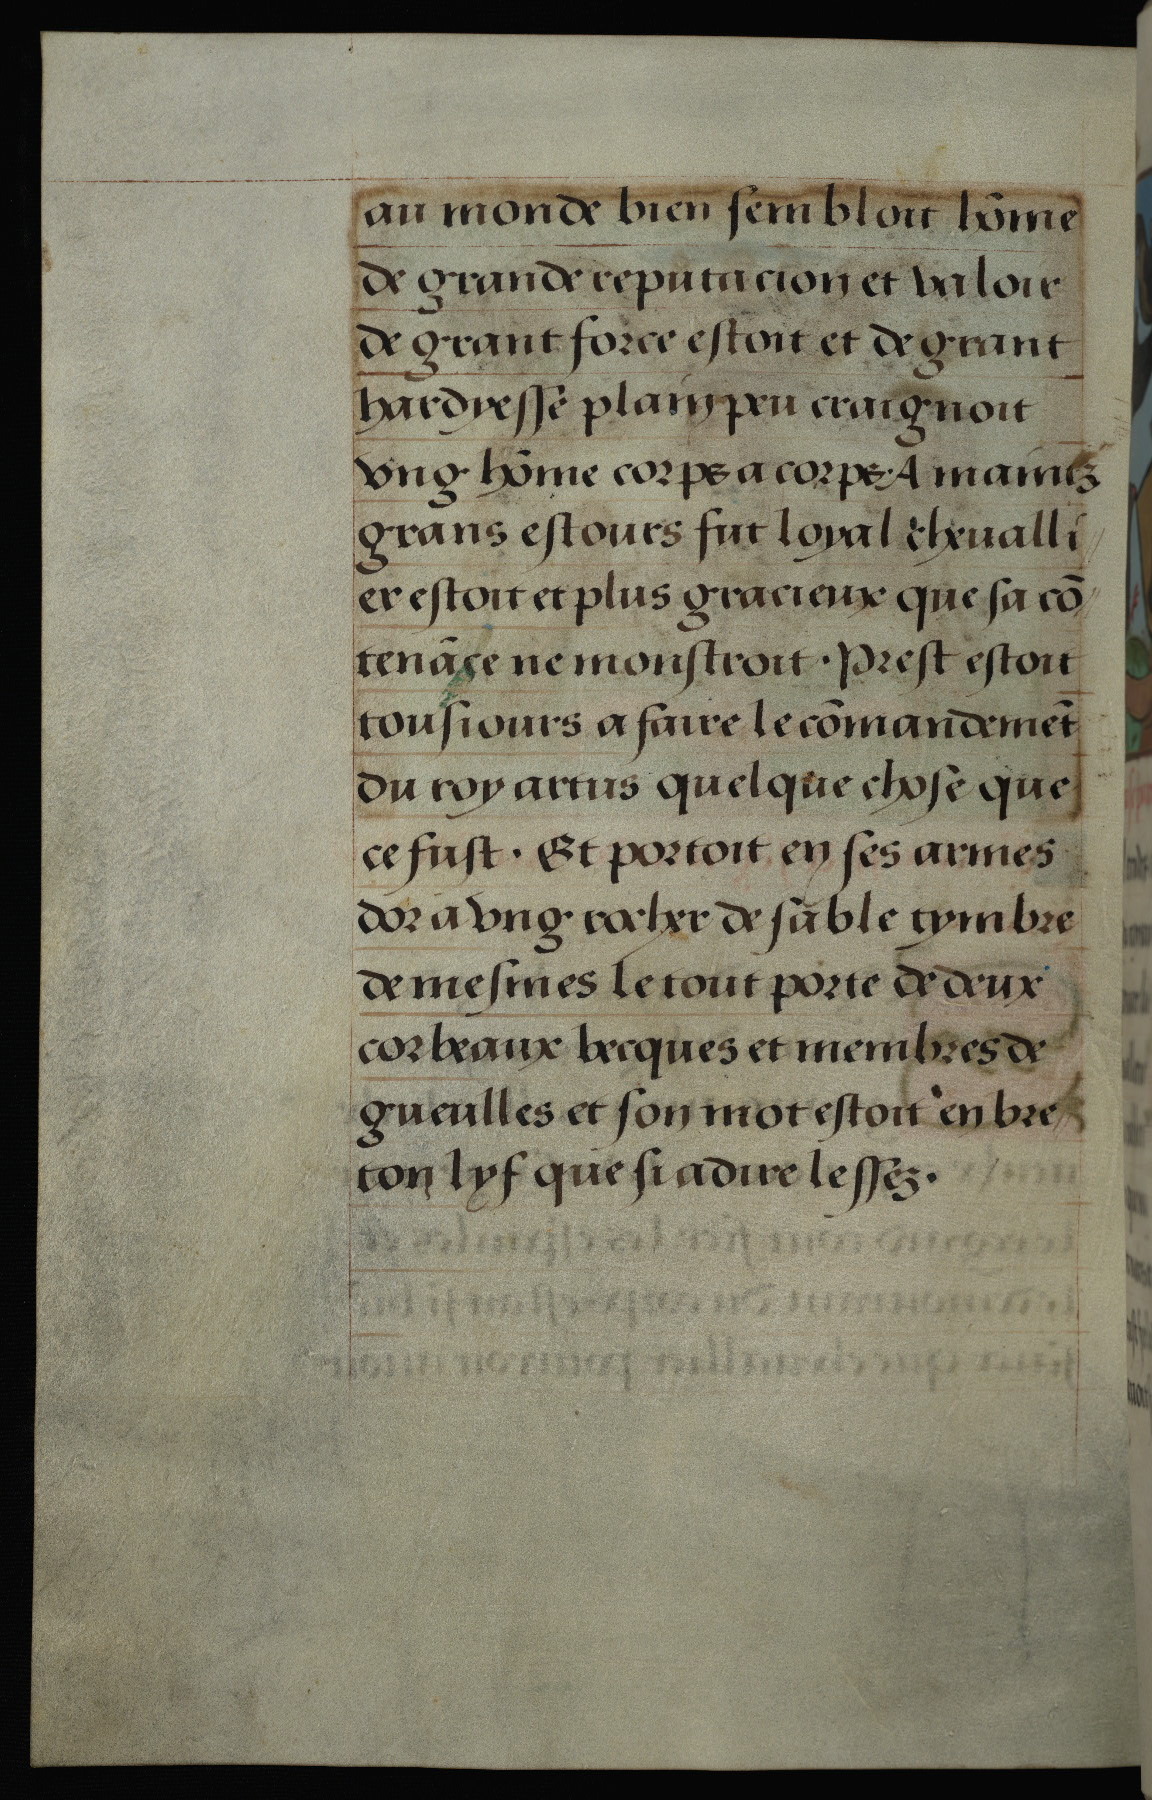 au monde bien sembloit hōme
de grande reputacion et valoir
de grant force estoit et de grant
hardyesse plain peu craignoit
vng hōme corps a corps · A maintz
grans estours fut loyal cheualli
er estoit et plus gracieux que sa cō
tenāce ne monstroit · Prest estoit
tousiours a faire le cōmandemēt
du roy artus quelque chose que
ce fust · Et portoit en ses armes
dor a vng rocher de sable tymbre
de mesmes le tout porte de deux
corbeaux becques et membres de
gueulles et son mot estoit en bre
ton lyf que si adire lessez ·